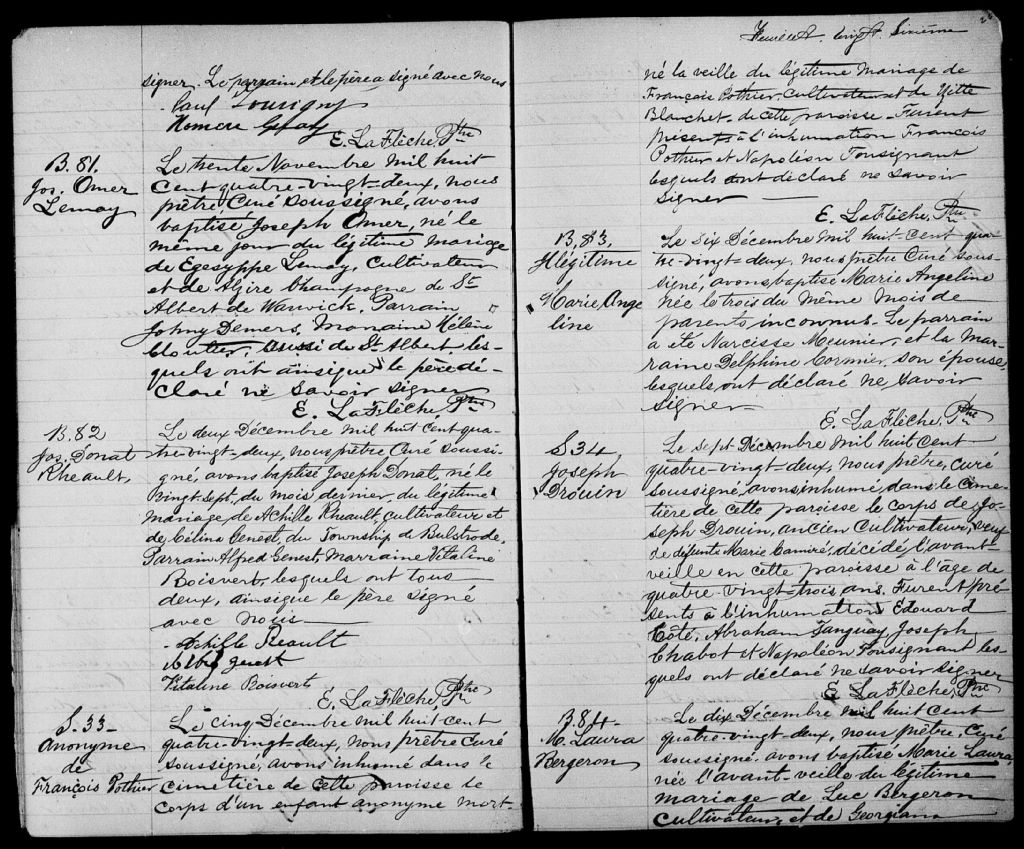 signer. Le parrain, et le père a signé avec nous
Paul Louvigny
E. LaFlèche, Ptre
B. 81.
Jos. Omer
Lemay
Le trente Novembre mil huit
cent quatre-vingt-deux, nous
prêtre Curé soussigné, avons
baptisé Joseph Omer, né le
même jour du légitime mariage
de Egesyppe Lemay, cultivateur
et de Alzire Champagne de St
Albert de Warwick, Parrain
Johny Demers, Marraine Hélène
Cloutier, aussi de St Albert, les-
quels ont ainsique le père dé-
claré ne savoir signer
E. LaFlèche, Ptre
B. 82
Jos. Donat
Rheault,
Le deux Décembre mil huit cent qua-
tre-vingt-deux, nous prêtre Curé soussi-
gné, avons baptisé Joseph Donat, né le
vingt sept, du mois dernier, du légitime
mariage de Achille Rheault, cultivateur et
de Célina Genest, du Township de Bulstrode,
Parrain Alfred Genest, Marraine Vitaline
Boisvert, lesquels ont tous
deux, ainsique le père signé
avec nous
Achille Reault
Genest
Vitaline Boisvert
E. LaFlèche, Ptre
S. 33
Anonyme
de
François Pothier
Le cinq Décembre mil huit cent
quatre-vingt-deux, nous prêtre Curé
soussigné, avons inhumé dans le
cimetière de cette paroisse le
corps d'un enfant anonyme mort-
Feuillet vingt. Sixième
né la veille du légitime mariage de
François Pothier, Cultivateur et de Yitte
Blanchet, de cette paroisse. Furent
présents à l'inhumation François
Pothier et Napoléon Tousignant
lesquels ont déclaré ne savoir
signer
E. LaFlèche, Ptre
B. 83.
Illégitime
Marie Ange
line
Le six Décembre mil huit-cent qua-
tre-vingt-deux, nous prêtre Curé sous-
signé, avons baptisé Marie Angeline
née le trois du même mois de
parents inconnus. Le parrain
a été Narcisse Meunier, et la mar-
raine Delphine Cormier, son épouse,
lesquels ont déclaré ne savoir
signer
E. LaFlèche, Ptre
S 34
Joseph
Drouin
Le sept Décembre mil huit cent
quatre-vingt-deux, nous prêtre, curé
soussigné, avons inhumé, dans le cime-
tière de cette paroisse le corps de Jo-
seph Drouin, ancien Cultivateur, veuf
de défunte Marie Camiré, décédé, l'avant-
veille en cette paroisse à l'âge de
quatre-vingt-trois ans. Furent pré-
sents à l'inhumation Edouard
Côté, Abraham Tanguay, Joseph
Chabot et Napoléon Tousignant les-
quels ont déclaré ne savoir signer
E. LaFlèche, Ptre
B. 84.
M. Laura
Bergeron
Le dix Décembre mil huit cent
quatre-vingt-deux, nous prêtre, Curé
soussigné, avons baptisé Marie Laura,
née l'avant-veille du légitime
mariage de Luc Bergeron
Cultivateur, et de Georgiana